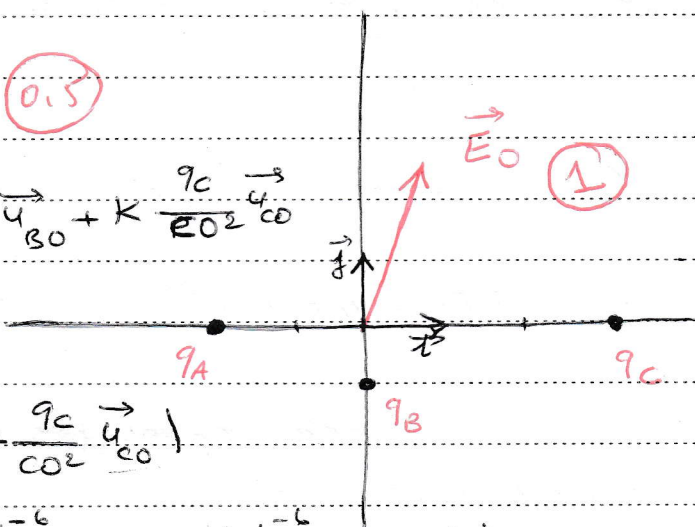 0.5
E⃗O 1
u⃗BO + K qC/CO² u⃗CO
j⃗
i⃗
qA qC
qB
qC/CO² u⃗CO )
-6 -6